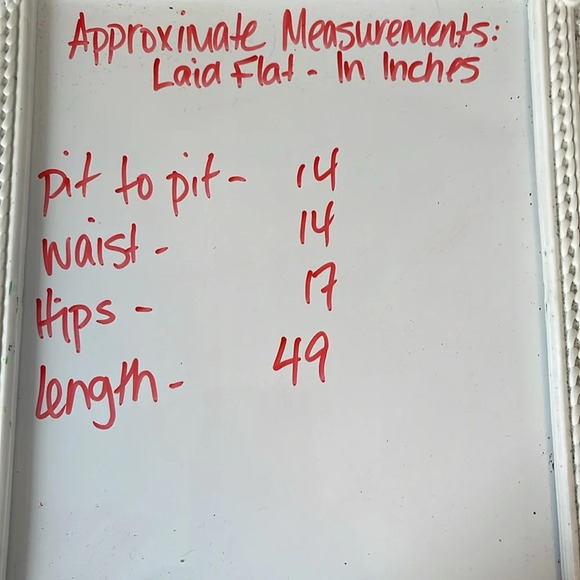 Approximate Measurements:
Laid Flat - In Inches
pit to pit - 14
waist - 14
Hips - 17
Length - 49